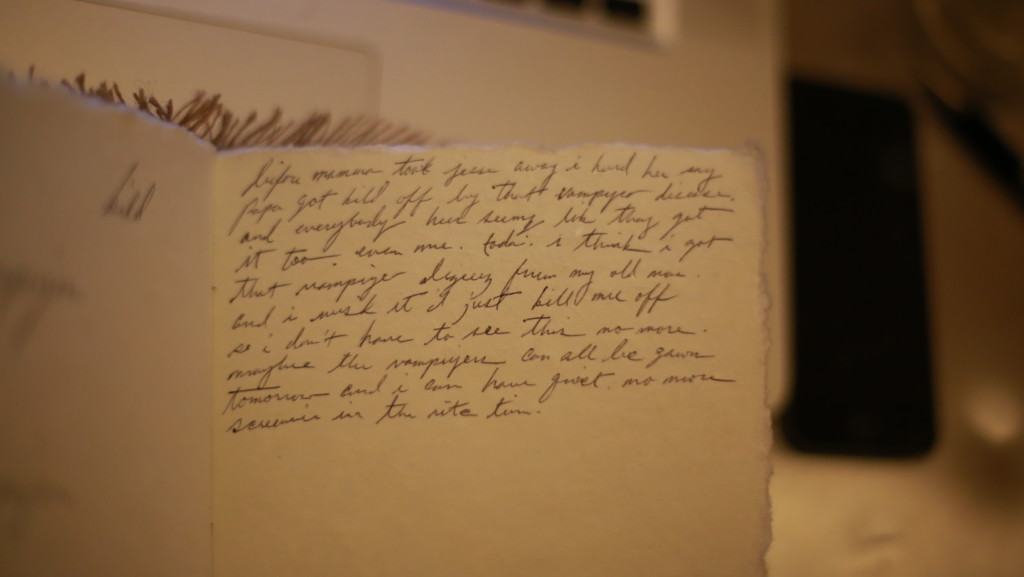 kild
before mamma took jesse away i hard her say
papa got kill off by that vampiyer disease.
and everybody here seemz lik they got
it too even me. todi. i think i got
that vampiyer dizeez frum my old man.
and i wish it'd just kill me off
so i don't have to see this no more.
maybee the vampiyers can all be gawn
tomorrow and i can have qwiet. no more
screemin in the nite time.